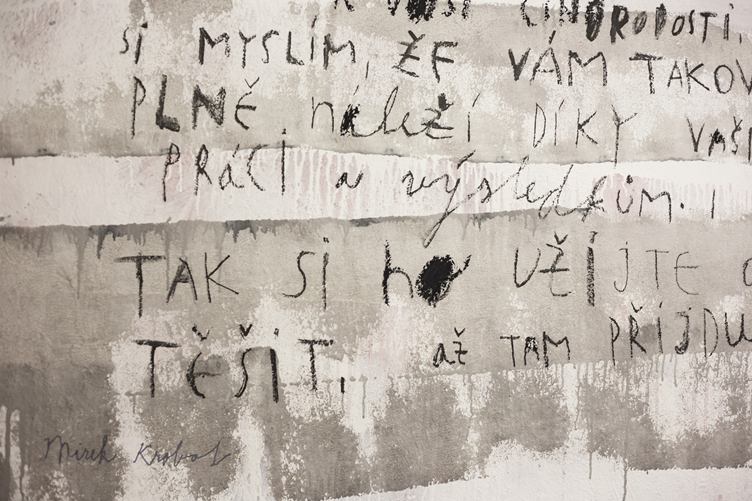 SI MYSLÍM, ŽE VÁM TAKOV
PLNĚ náleží DÍKY VAŠÍ
PRÁCI a výsledkům. I
TAK SI ho UŽIJTE
TĚŠIT. až TAM PŘIJDU
Mirek Krobot